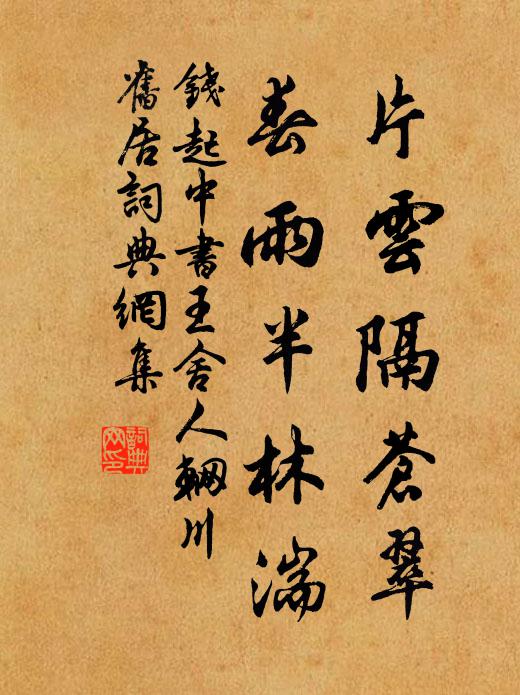 片雲隔蒼翠
春雨半林湍
錢起中書王舍人輞川
舊居詞典網集
詞典網印